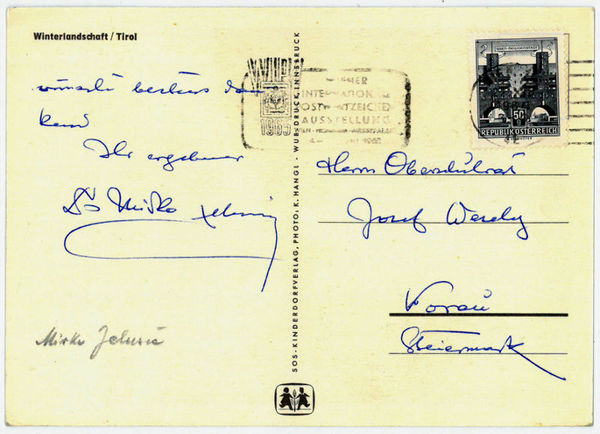 Winterlandschaft / Tirol
wünscht bestens dan
kend
Ihr ergebener
Mirko Jelusic
SOS-KINDERDORFVERLAG, PHOTO, K. HANGL - WUB-DRUCK, INNSBRUCK
WIPA
1965
WIENER
INTERNATIONALE
POSTWERTZEICHEN
AUSSTELLUNG
50
REPUBLIK ÖSTERREICH
Herrn Oberschulrat
Josef
Vorau
Steiermark